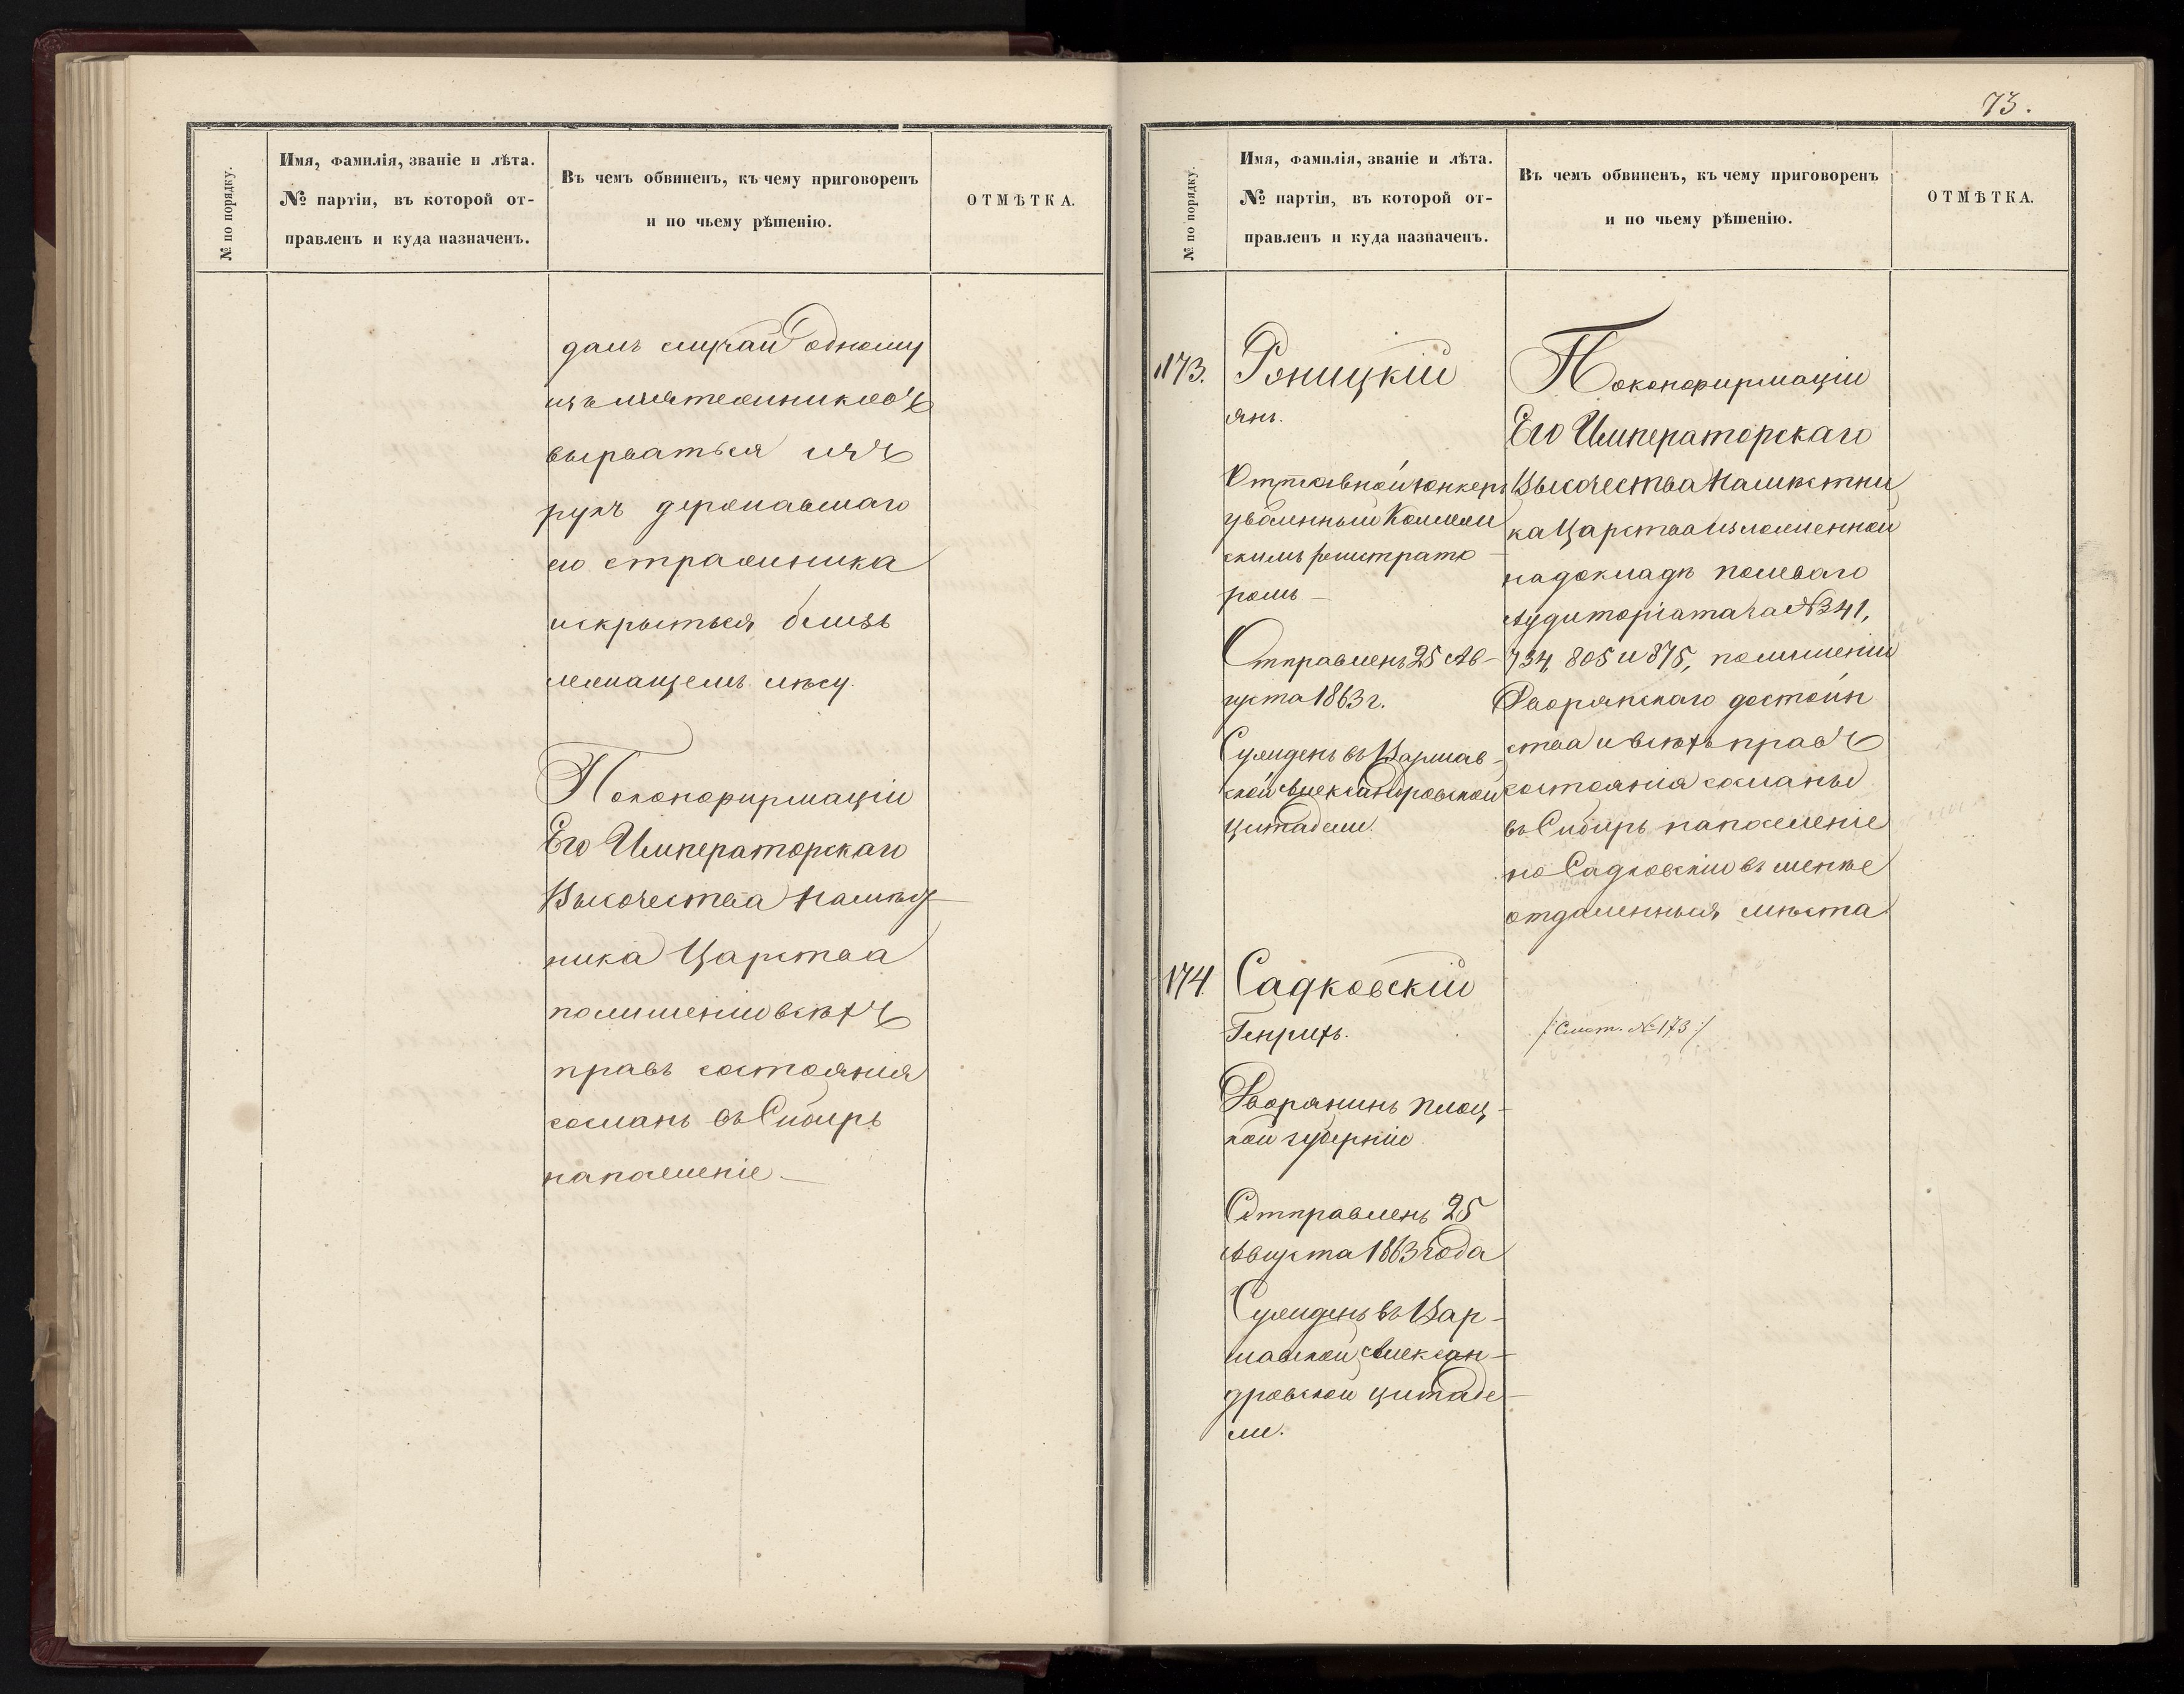 № по порядку.
Имя, фамилія, званіе и лѣта.
№ партіи, въ которой от-
правленъ и куда назначенъ.
Въ чемъ обвиненъ, къ чему приговоренъ
и по чьему рѣшенію.
ОТМѢТКА.
далъ случай одному
изъ мятежниковъ
вырваться изъ
рукъ державшаго
его стражника
искрыться близъ
лежащемъ лѣсу.
Поконфирмаціи
Его Императорскаго
Высочества Намѣст
ника Царства
полишеніи всѣхъ
правъ состоянія
сосланъ въ Сибирь
напоселеніе —
73.
№ по порядку.
Имя, фамилія, званіе и лѣта.
№ партіи, въ которой от-
правленъ и куда назначенъ.
Въ чемъ обвиненъ, къ чему приговоренъ
и по чьему рѣшенію.
ОТМѢТКА.
173.
Роницкій
янъ.
Отставной юнкеръ
уволенный Коллеж
скимъ регистрато
ромъ —
Отправленъ 25 Ав-
густа 1863 г.
Суждёнъ въ Варшав-
ской Александровской
цитадели.
Поконфирмаціи
Его Императорскаго
Высочества Намѣстни
ка Царства изложенной
надокладѣ полеваго
Аудиторіата за № 341,
734, 805 и 875, полишеніи
Дворянскаго достоин
ства и всѣхъ правъ
состоянія сосланы
въ Сибирь напоселеніе
но Садковскій въ менѣе
отдаленныя мѣста.
174.
Садковскій
Генрихъ.
Дворянинъ Плоц-
кой губерніи.
Отправленъ 25
Августа 1863 года
Сужденъ въ Вар-
шавской Алексан-
дровской цитаде-
ли.
/: Смот. № 173 :/